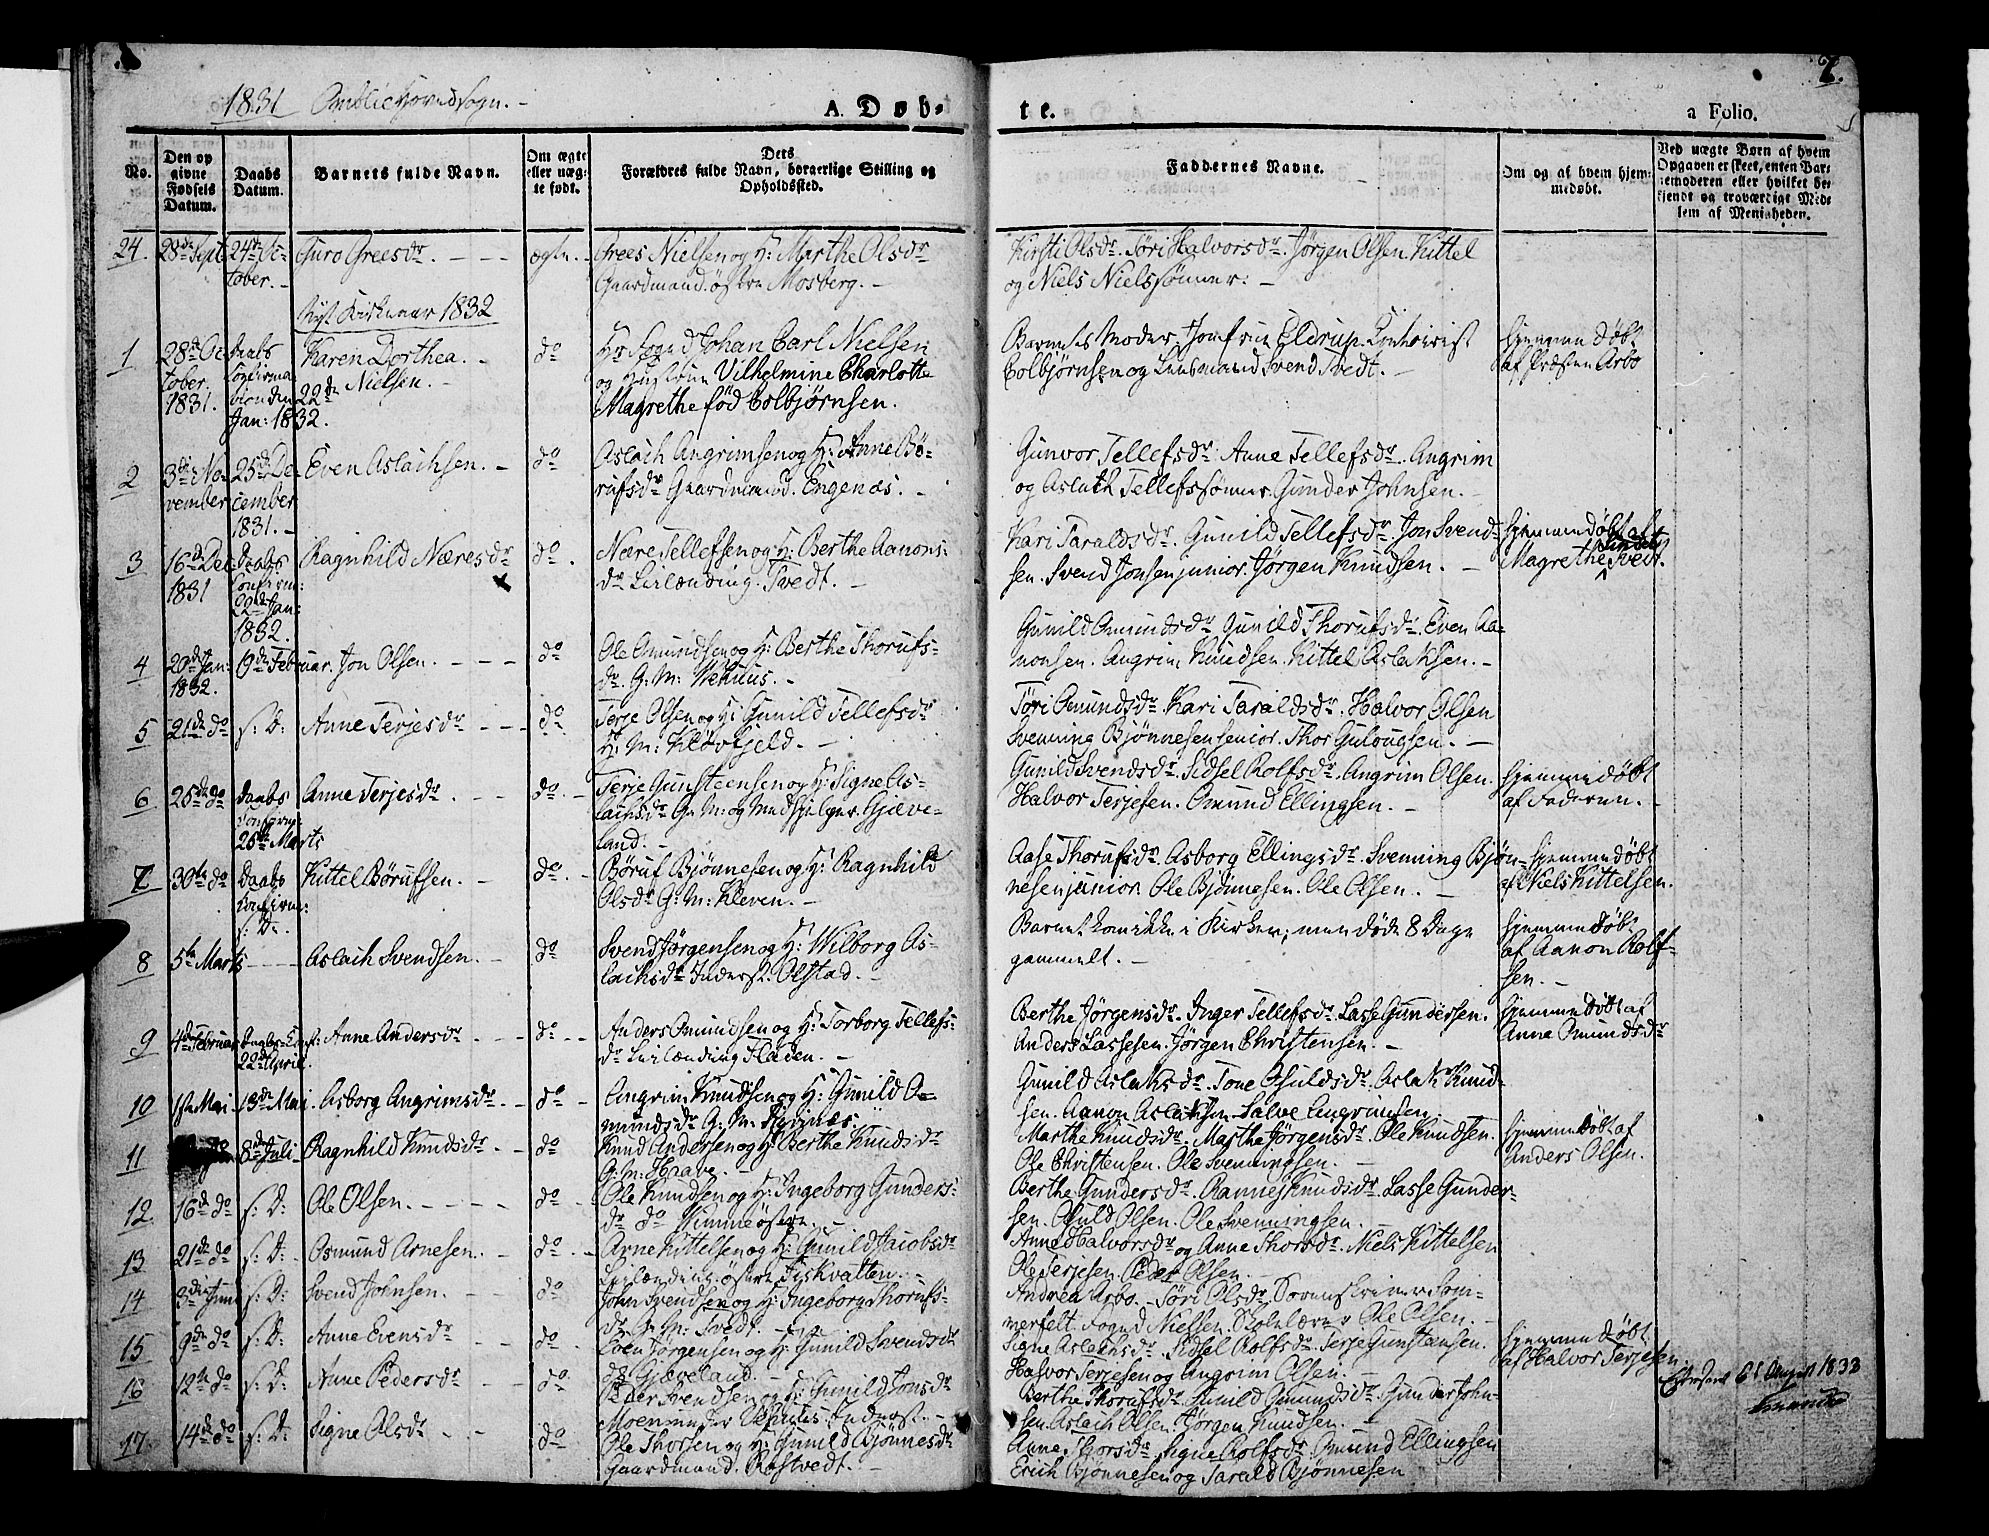 1831 Omblie Hovedsogn.
A. Døb-
te.
a Folio.
7.
No.
Den op
givne
Fødsels
Datum.
Daabs
Datum.
Barnets fulde Navn.
Om ægte
eller uæg-
te født.
Dets
Forældres fulde Navn, borgerlige Stilling og
Opholdssted.
Faddernes Navne.
Om og af hvem hjem-
medøbt.
Ved uægte Børn af hvem
Opgaven er skeet, enten Bar-
nemoderen eller hvilket be-
kjendt og troværdigt Med-
lem af Menigheden.
24. 28de Sept 24de Oc-
tober.
Guro Greesdr.
ægte.
Grees Nielsen og H: Marthe Olsdr
Gaardmand. østre Mosberg.
Kirsti Olsdr. Tøri Halvorsdr. Jørgen Olsen. Kittel
og Niels Nielssønner.
Nyt Kirkeaar 1832
1
28de Oc
tober.
1831.
Daabs
Confirma
tion den 22de
Jan: 1832.
Karen Dorthea
Nielsen.
do
Hr Foged Johan Carl Nielsen
og Hustrue Vilhelmine Charlotte
Magrethe fød Colbjørnsen.
Barnets Moder. Jomfrue Eldrup. Contorist
Colbjørnsen og Lensmand Svend Tvedt.
hjemmedøbt
af Præsten Arbo
2
3die No-
vember
25de De-
cember
1831.
Even Aslachsen.
do
Aslach Angrimsen og H: Anne Bø-
rufsdr Gaardmand. Engenæs.
Gunvor Tellefsdr. Anne Tellefsdr. Angrim
og Aslach Tellefssønner. Gunder Johnsen.
3
16de Dec
1831
Daabs
Confirm:
22de Jan:
1832.
Ragnhild Næresdr
do.
Nære Tellefsen og H: Berthe Aanons-
dr Leilænding. Tvedt.
Kari Taraldsdr. Gunild Tellefsdr. Jon Svend-
sen. Svend Jonsen junior. Jørgen Knudsen.
hjemmedøbt af
Magrethe Tvedt.
4
20de Jan:
1832.
19de Februar.
Jon Olsen.
do
Ole Omundsen og H: Berthe Thorufs-
dr. G: M: Wehuus.
Gunild Omundsdr. Gunild Thorufsdr. Even Aa-
nonsen. Angrim Knudsen. Kittel Aslaksen.
5
21de do
s: D:
Anne Terjesdr
do
Terje Olsen og H: Gunild Tellefsdr
H: M: Kløvfjeld.
Tøri Omundsdr. Kari Taraldsdr. Halvor Olsen
Svenning Bjønnesen senior. Thor Gulougsen.
6
25de do
Daabs
Confirm:
25de Marts
Anne Terjesdr
do.
Terje Gunsteensen og H: Signe As-
lachsdr G: M: og Medhjelper. Gjæve-
land.
Gunild Svendsdr. Sidsel Rolfsdr. Angrim Olsen.
Halvor Terjesen. Omund Ellingsen.
hjemmedøbt
af Faderen.
7
30te do
Daabs
Confirm:
s: D:
Kittel Børufsen.
do.
Børuf Bjønnesen og H: Ragnhild
Olsdr G: M: Kleven.
Aase Thorufsdr. Asborg Ellingsdr. Svenning Bjøn-
nesen junior. Ole Bjønnesen. Ole Olsen.
hjemmedøbt
af Niels Kittelsen.
8
5te Marts
Aslach Svendsen.
do
Svend Jørgensen og H: Wilborg As-
lachsdr Inderst. Olstad.
Barnet kom ikke i Kirken; men døde 8 Dage
gammelt.
hjemmedøbt
af Aanon Rolf-
sen.
9
4de Februar
Daabs-Conf:
22de April.
Anne Andersdr
do
Anders Omundsen og H: Torborg Tellefs-
dr Leilænding Fladen.
Berthe Jørgensdr. Inger Tellefsdr. Lasse Gundersen.
Anders Lassesen. Jørgen Christensen.
hjemmedøbt af
Anne Omundsdr
10
1ste Mai
13de Mai
Asborg Angrimsdr
do
Angrim Knudsen og H: Gunild O-
mundsdr G: M:
Gunild Aslaksdr. Tone Osuldsdr. Aslak Knud-
sen. Aanon Aslaksen. Salve Angrimsen.
11
8de Juli
Ragnhild Knudsdr
do
Knud Andersen og H: Berthe Knudsdr
G: M: Hauve.
Marthe Knudsdr. Marthe Jørgensdr. Ole Knudsen.
Ole Christensen. Ole Svenningsen.
hjemmedøbt af
Anders Olsen.
12.
16de do
s: D:
Ole Olsen.
do
Ole Knudsen og H: Ingeborg Gunders-
dr do Wimme østre.
Berthe Gundersdr. Rannej Knudsdr. Lasse Gunder-
sen. Osuld Olsen. Ole Svenningsen.
13
21de do
s: D:
Osmund Arnesen.
do
Arne Kittelsen og H: Gunild Jacobsdr
Leilænding østre Fiskvatten.
Anne Halvorsdr og Anne Thorsdr. Niels Kittelsen
Ole Terjesen. Peder Olsen.
14
3die Juni
s: D:
Svend Johnsen.
do
John Svendsen og H: Ingeborg Thorufs-
dr G: M: Tvedt.
Andrea Arbo. Tøri Olsdr. Sorenskriver Som-
merfelt. Foged Nielsen. Skolelærer Ole Olsen.
15
9de do
s: D:
Anne Evensdr
do.
Even Jørgensen og H: Gunild Svendsdr
do Gjæveland.
Signe Aslachsdr. Sidsel Rolfsdr. Terje Gunstensen.
Halvor Terjesen og Angrim Olsen.
hjemmedøbt
af Halvor Terjesen
16
12te do
s: D:
Anne Pedersdr
do
Peder Svendsen og H: Gunild Jonsdr
Moen under Vehuus. Inderst.
Berthe Thorufsdr. Gunild Omundsdr. Gunder John-
sen. Aslach Olsen. Jørgen Knudsen.
17.
14de do
s: D:
Signe Olsdr
do
Ole Thorsen og H: Gunild Bjønnesdr
Gaardmand. Røstvedt.
Anne Thorsdr. Signe Rolfsdr. Omund Ellingsen
Erich Bjønnesen og Tarald Bjønnesen
August 1833